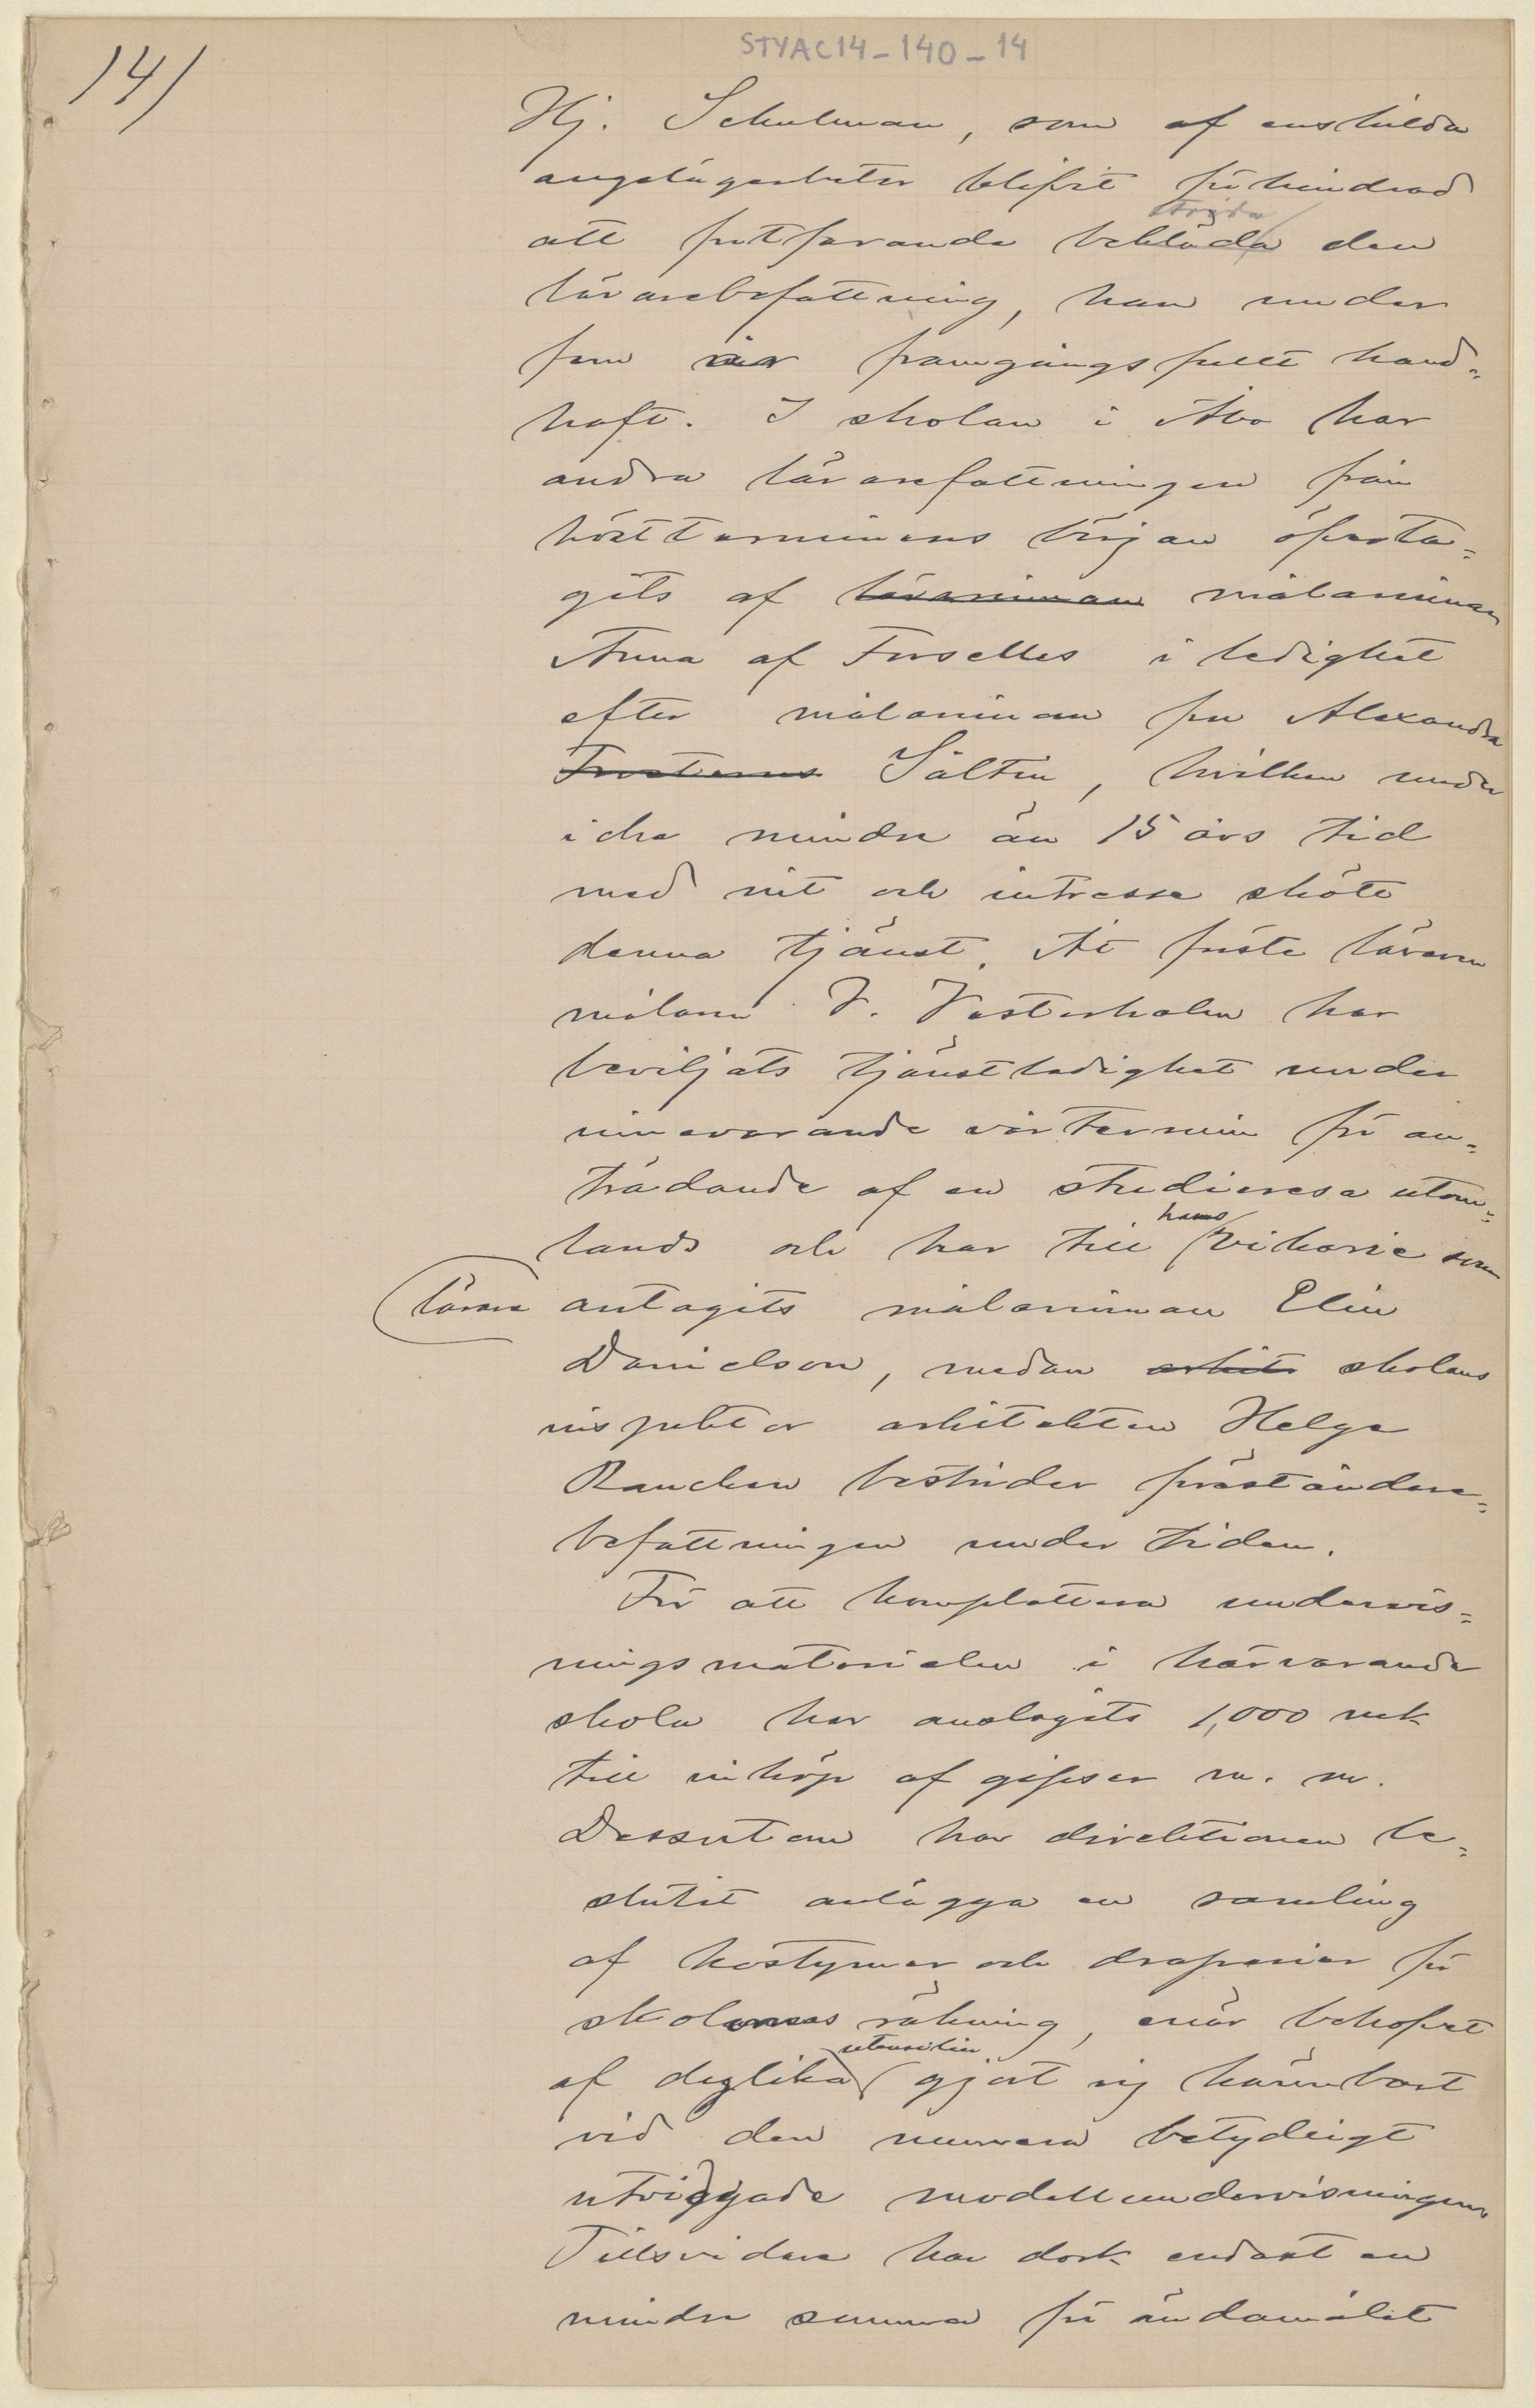 STYAC14-140-14
14/
Hj. Schulman, som af enskilda
angelägenheter blifvit förhindrad
strida
att fortfarande bekläda den
lärarebefattning, han under
fem år framgångsfullt hand-
haft. I skolan i Åbo har
andra lärarefattningen från
höstterminens början öfverta-
gits af lärarinnan målarinnan
Anna af Forselles i ledighet
efter målarinnan fru Alexandra
Frosterus Såltin, hvilken under
icke mindre än 15 års tid
med nit och intresse skött
denna tjänst. At förste läraren
målaren V. Vesterholm har
beviljats tjänstledighet under
innevarande vårtermin för an-
trädande af en studieresa utom-
hans
lands och har till vikarie som
lärare antagits målarinnan Elin
Danielson, medan arkite skolans
inspektor arkitekten Helge
Rancken bestrider föreståndare-
befattningen under tiden.
För att komplettera undervis-
ningsmaterialen i härvarande
skola har anslagits 1,000 mk
till inköp af gipser m. m.
Dessutom har direktionen be-
slutit anlägga en samling
af kostymer och draperier för
skolornas räkning, enär behofvet
utensilier
af dylika gjort sig kännbart
vid den numera betydligt
utvidgade modellundervisningen
Tillsvidare har dock endast en
mindre summa för ändamålet